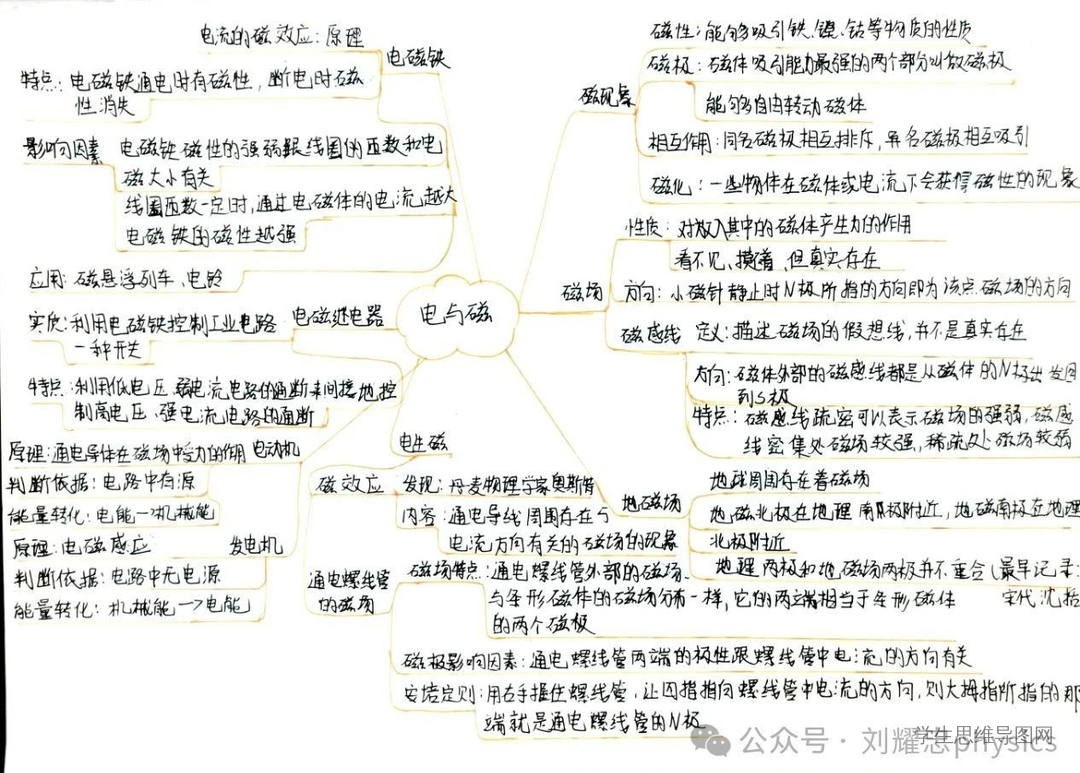 电流的磁效应:原理
电磁铁
特点:电磁铁通电时有磁性,断电时磁
性消失
影响因素 电磁铁磁性的强弱跟线圈的匝数和电
磁大小有关
线圈匝数一定时,通过电磁体的电流越大
电磁铁的磁性越强
应用:磁悬浮列车、电铃
电磁继电器
实质:利用电磁铁控制工业电路
一种开关
特点:利用低电压、弱电流电路的通断来间接地控
制高电压、强电流电路的通断
电动机
原理:通电导体在磁场中受力的作用
判断依据:电路中有源
能量转化:电能→机械能
发电机
原理:电磁感应
判断依据:电路中无电源
能量转化:机械能→电能
电与磁
磁现象
磁性:能够吸引铁、镍、钴等物质的性质
磁极:磁体吸引能力最强的两个部分叫做磁极
能够自由转动磁体
相互作用:同名磁极相互排斥,异名磁极相互吸引
磁化:一些物体在磁体或电流下会获得磁性的现象
磁场
性质:对放入其中的磁体产生力的作用
看不见、摸着,但真实存在
方向:小磁针静止时N极所指的方向即为该点磁场的方向
磁感线 定义:描述磁场的假想线,并不是真实存在
方向:磁体外部的磁感线都是从磁体的N极出发回
到S极
特点:磁感线疏密可以表示磁场的强弱,磁感
线密集处磁场较强,稀疏处磁场较弱
地磁场
地球周围存在着磁场
地磁北极在地理南极附近,地磁南极在地理
北极附近
地理两极和地磁场两极并不重合(最早记录:
宋代沈括
电生磁
磁效应 发现:丹麦物理学家奥斯特
内容:通电导线周围存在与
电流方向有关的磁场的现象
通电螺线管
的磁场
磁场特点:通电螺线管外部的磁场
与条形磁体的磁场分布一样,它的两端相当于条形磁体
的两个磁极
磁极影响因素:通电螺线管两端的极性跟螺线管中电流的方向有关
安培定则:用右手握住螺线管,让四指指向螺线管中电流的方向,则大拇指所指的那
端就是通电螺线管的N极
公众号·刘耀思physics
学生思维导图网